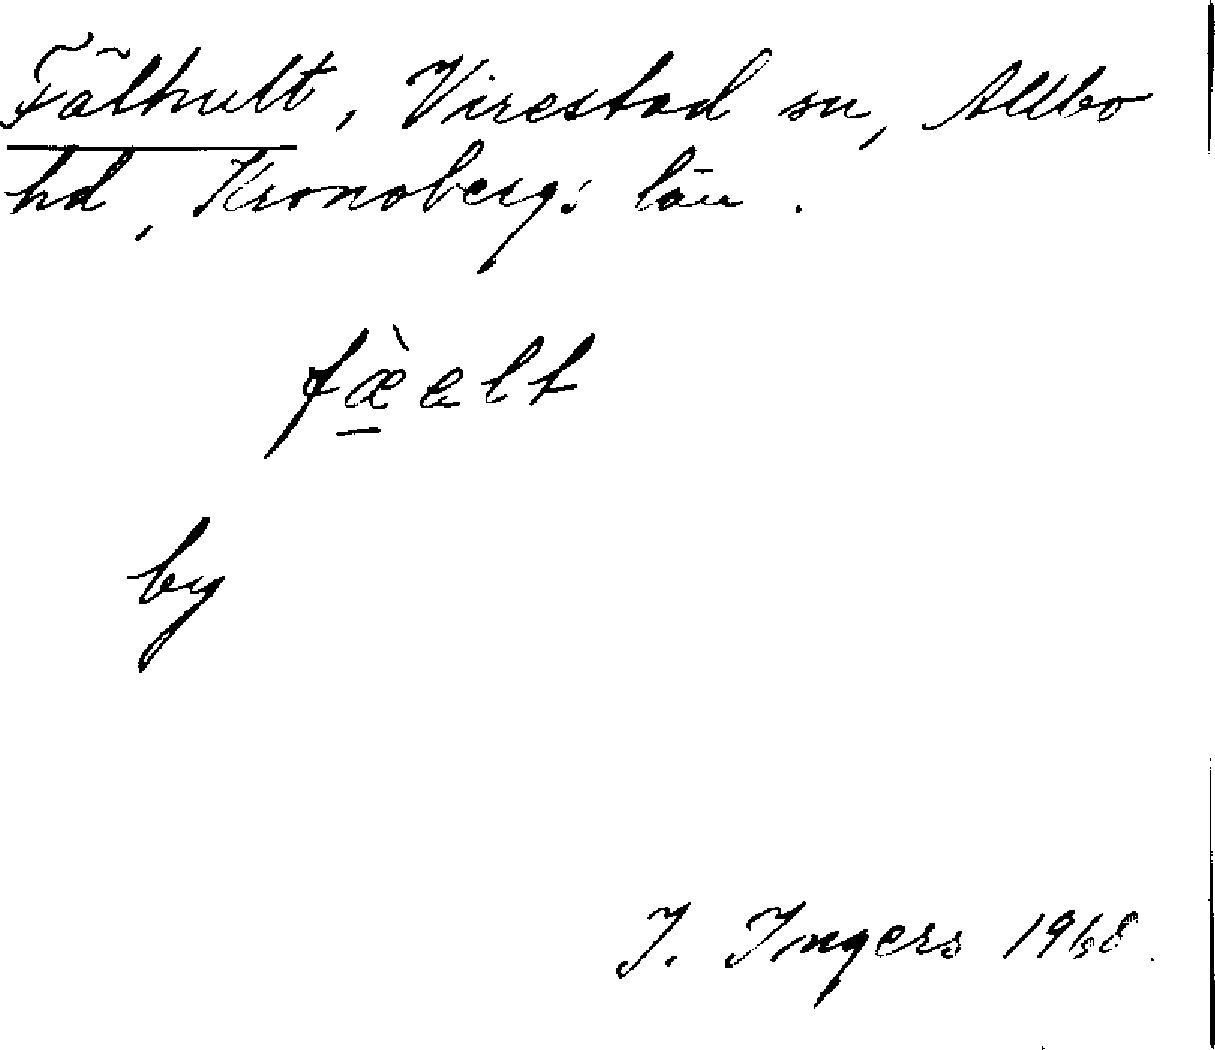 Fälhult, Virestad sn, Allbo
hd, Kronobergs län.
fæ̀elt
by
I. Ingers 1968.